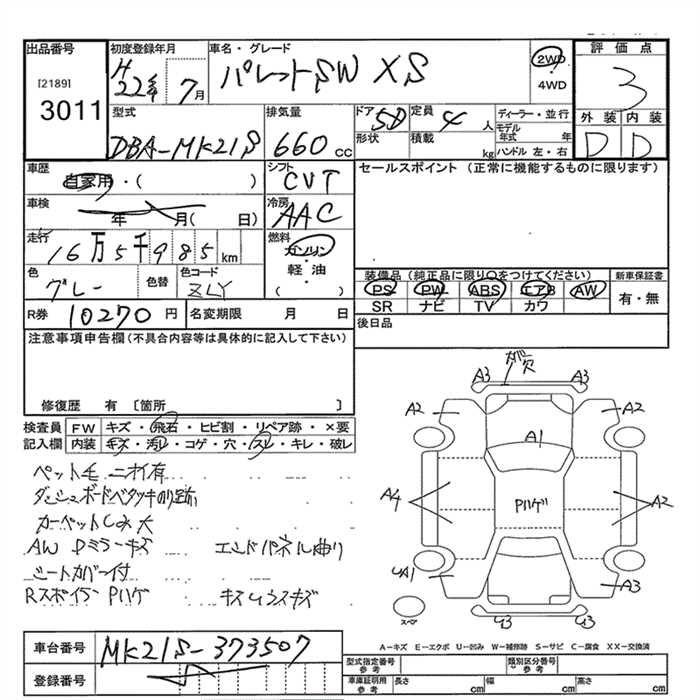 出品番号 初度登録年月 車名・グレード 2WD 評価点
[2189] H22年 7月 パレットSW XS 4WD 3
3011 型式 排気量 ドア 5D 定員 4人 ディーラー・並行 外装 内装
DBA-MK21S 660cc 形状 積載 kg モデル年式 年 ハンドル 左・右 D D
車歴 自家用・( ) シフト CVT セールスポイント (正常に機能するものに限ります)
車検 年 月( 日) 冷房 AAC
走行 16万5千985km 燃料 ガソリン 軽油 ( )
色 グレー 色替 色コード ZLY
装備品 (純正品に限り○をつけてください) 新車保証書
PS PW ABS エアB AW 有・無
SR ナビ TV カワ
R券 10270円 名変期限 月 日 後日品
注意事項申告欄(不具合内容等は具体的に記入して下さい)
修復歴 有 〔箇所 〕
検査員 FW キズ・飛石・ヒビ割・リペア跡・×要
記入欄 内装 キズ・汚レ・コゲ・穴・スレ・キレ・破レ
ペット毛 ニオイ有
ダッシュボードベタツキのり跡
カーペットしみ大
AW Dミラーキズ エンドパネル曲り
シートカバー付
Rスポイラー Pハゲ
カバー欠
A3 A3
A2 A2
A1
A4 Pハゲ A2
UA1 A3
スペア U3 U3
A-キズ E-エクボ U-凹み W-補修跡 S-サビ C-腐食 XX-交換済
車台番号 MK21S-373507
登録番号
型式指定番号 参考 類別区分番号 参考
車庫証明用 参考 長さ cm 幅 cm 高さ cm